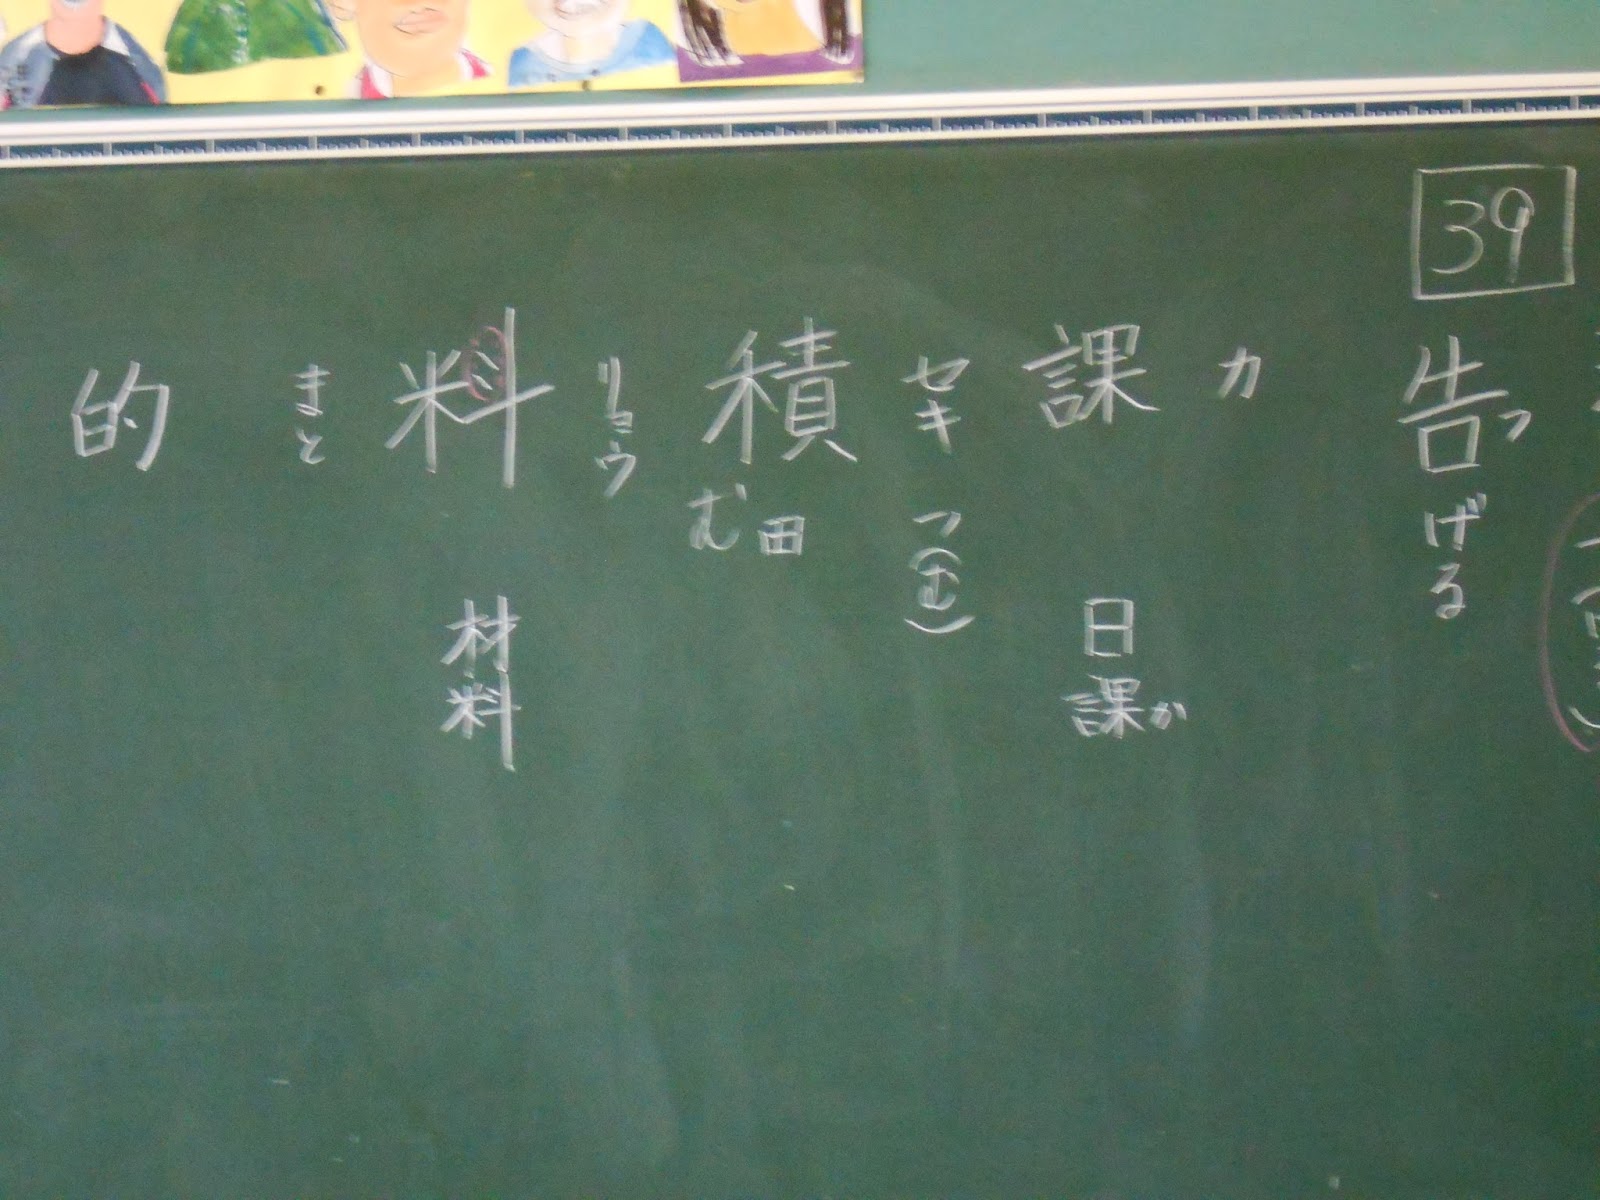 39
告げる
つ
カ
課
日課
か
セキ
つ(む)
積
田
む
リョウ
料
材料
まと
的